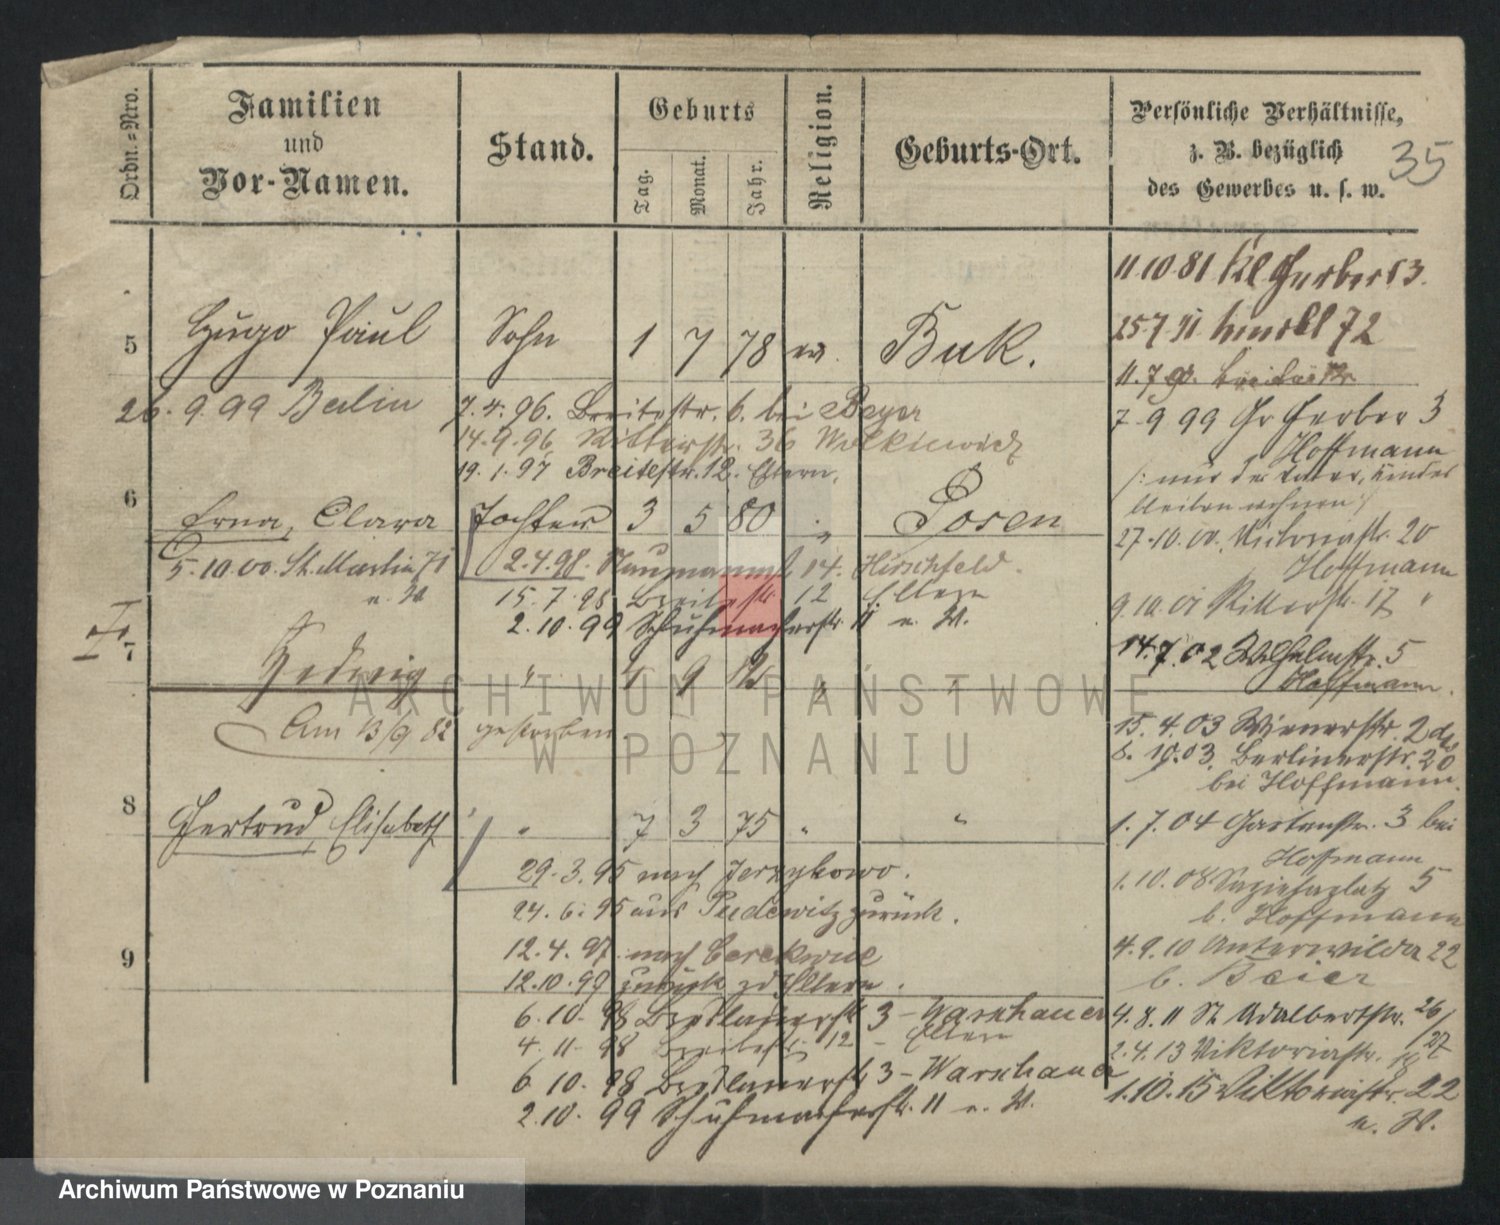 Ordn.=Nro.
Familien
und
Vor-Namen.
Stand.
Geburts
Tag.
Monat.
Jahr.
Religion.
Geburts-Ort.
Persönliche Verhältnisse,
z. B. bezüglich
des Gewerbes u. s. w.
35
5 Hugo Paul Sohn 1 7 78 ev. Buk.
26. 9. 99 Berlin
7. 4. 96. Breitestr. 6. bei Beyer
14. 9. 96 Ritterstr. 36
19. 1. 97 Breitestr. 12. Eltern.
6 Erna, Clara Tochter 3 5 80 " Posen
5. 10. 00. St. Martin 71
2. 4. 98. Naumannst. 14. Hirschfeld.
15. 7. 98 Breitestr. 12 Eltern
2. 10. 99 Schuhmacherstr. 11 u. W.
7 Hedwig " 9 "
Am 13/9 82 gestorben
8 Gertrud, Elisabeth " 7 3 75 " "
29. 3. 95 nach Jerzykowo.
24. 6. 95 aus Pudewitz zurück.
12. 4. 97. nach
zurück zd. Eltern.
6. 10. 98 3 - Warschauer
9
4. 11. 98 Breitestr. 12 - Eltern
6. 10. 98 3 - Warschauer
2. 10. 99 Schuhmacherstr. 11 u. W.
11 10 81 Kl Gerberst 3.
72
11. 7
7. 9 99 Gr Gerber 3
Hoffmann
27. 10. 00. Victoriastr. 20
Hoffmann
9. 10. 01 Ritterstr. 17 "
14. 7. 02 Wilhelmstr. 5
Hoffmann.
15. 4. 03 Wienerstr. 2
6. 10. 03. Berlinerstr. 20
bei Hoffmann.
1. 7. 04 Gartenstr. 3 bei
Hoffmann
1. 10. 08 Sapiehaplatz 5
b. Hoffmann
4. 9. 10 Unterwilda 22
b. Beier
4. 8. 11 St Adalbertstr. 26/27
2. 4. 13 Viktoriastr. 18
1. 10. 15 Viktoriastr. 22
u. W.
ARCHIWUM PAŃSTWOWE
W POZNANIU
Archiwum Państwowe w Poznaniu